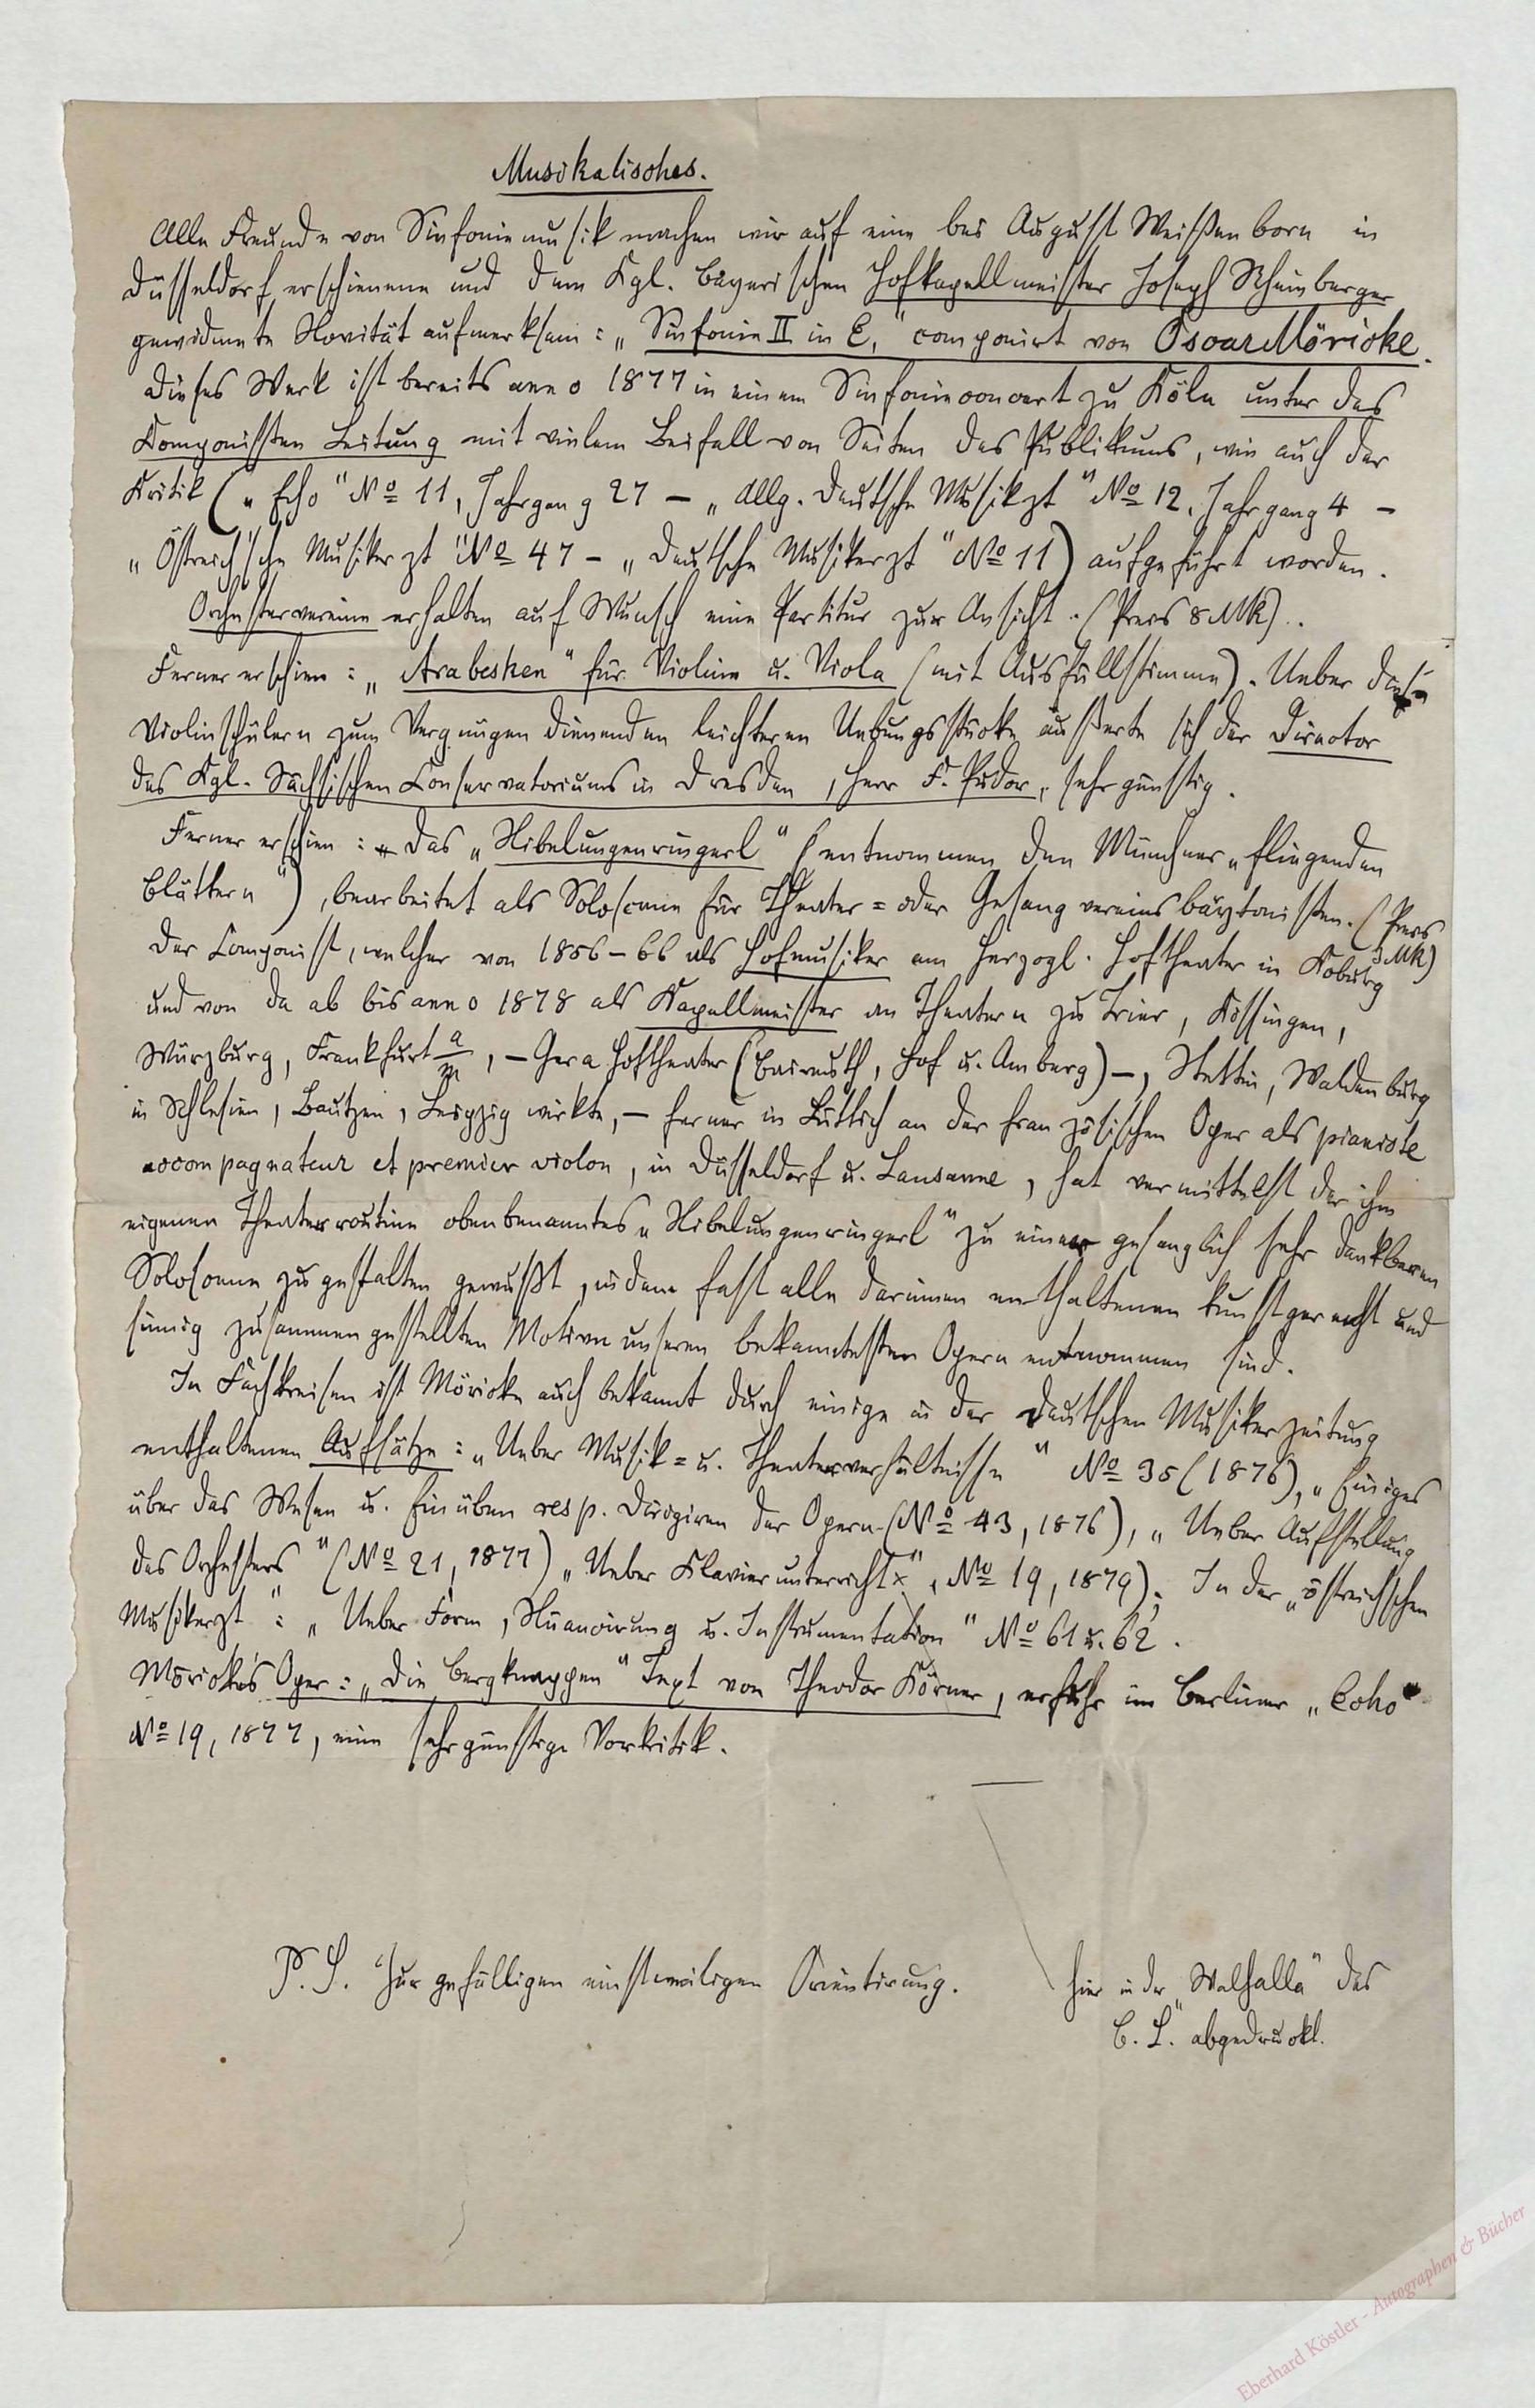 Musikalisches.
Alle Freunde von Sinfoniemusik machen wir auf eine bei August Weißenborn in
Düsseldorf erschienene und dem Kgl. bayerischen Hofkapellmeister Joseph Rheinberger
gewidmete Novität aufmerksam: „Sinfonie II in E," componirt von Oscar Möricke.
Dieses Werk ist bereits anno 1877 in einem Sinfonieconcert zu Köln unter des
Komponisten Leitung mit vielem Beifall von Seiten des Publikums, wie auch der
Kritik („Echo" No 11, Jahrgang 27 – „Allg. Deutsche Musikzt" No 12, Jahrgang 4 –
„Östreich'sche Musikerzt" No 47 – „Deutsche Musikerzt" No 11) aufgeführt worden.
Orchestervereine erhalten auf Wunsch eine Partitur zur Ansicht. (Preis 8 Mk).
Ferner erschien: „Arabesken" für Violine u. Viola (mit Ausfüllstimme). Ueber diese
Violinschülern zum Vergnügen dienenden leichteren Uebungsstücke äußerte sich der Director
des Kgl. Sächsischen Conservatoriums in Dresden, Herr F. Pudor, sehr günstig.
Ferner erschien: Das „Nibelungenringerl" (entnommen den Münchner „fliegenden
Blättern"), bearbeitet als Soloscene für Theater= oder Gesangvereinsbarytonisten. (Preis
3 Mk)
Der Componist, welcher von 1856–66 als Hofmusiker am Herzogl. Hoftheater in Koburg
und von da ab bis anno 1878 als Kapellmeister an Theatern zu Trier, Kissingen,
Würzburg, Frankfurt a/m, – Gera Hoftheater (Baireuth, Hof u. Amberg) –, Stettin, Waldenburg
in Schlesien, Bautzen, Leipzig wirkte, – ferner in Lüttich an der französischen Oper als pianiste
accompagnateur et premier violon, in Düsseldorf u. Lausanne, hat vermittelst der ihm
eigenen Theaterroutine obenbenanntes „Nibelungenringerl" zu einer gesanglich sehr dankbaren
Soloscene zu gestalten gewußt, indem fast alle darinnen enthaltenen kunstgerecht und
sinnig zusammengestellten Motive unseren bekanntesten Opern entnommen sind.
In Fachkreisen ist Möricke auch bekannt durch einige in der Deutschen Musikerzeitung
enthaltenen Aufsätze: „Ueber Musik= u. Theaterverhältnisse" No 35 (1876), „Einiges
über das Wesen u. Einüben resp. Dirigiren der Opern (No 43, 1876), „Ueber Aufstellung
des Orchesters" (No 21, 1877) „Ueber Klavierunterricht x", No 19, 1879); In der „östreichschen
Musikerzt": „Ueber Form, Nüancirung u. Instrumentation" No 61 u. 62.
Möricke's Oper: „Die Bergknappen" Text von Theodor Körner, erfuhr im Berliner „Echo"
No 19, 1877, eine sehr günstige Vorkritik.
P. S. Zur gefälligen einstweiligen Orientirung.
hier in der „Walhalla" des
C. L. abgedruckt.
Eberhard Köstler - Autographen & Bücher